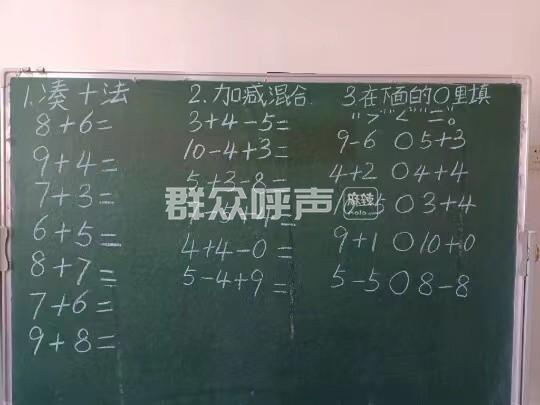 1.凑十法
8+6=
9+4=
7+3=
6+5=
8+7=
7+6=
9+8=
2.加减混合
3+4-5=
10-4+3=
5+3-8=
4+4-0=
5-4+9=
3在下面的○里填
“>”“<”“=”。
9-6○5+3
4+2○4+4
5○3+4
9+1○10+0
5-5○8-8
群众呼声
麻辣